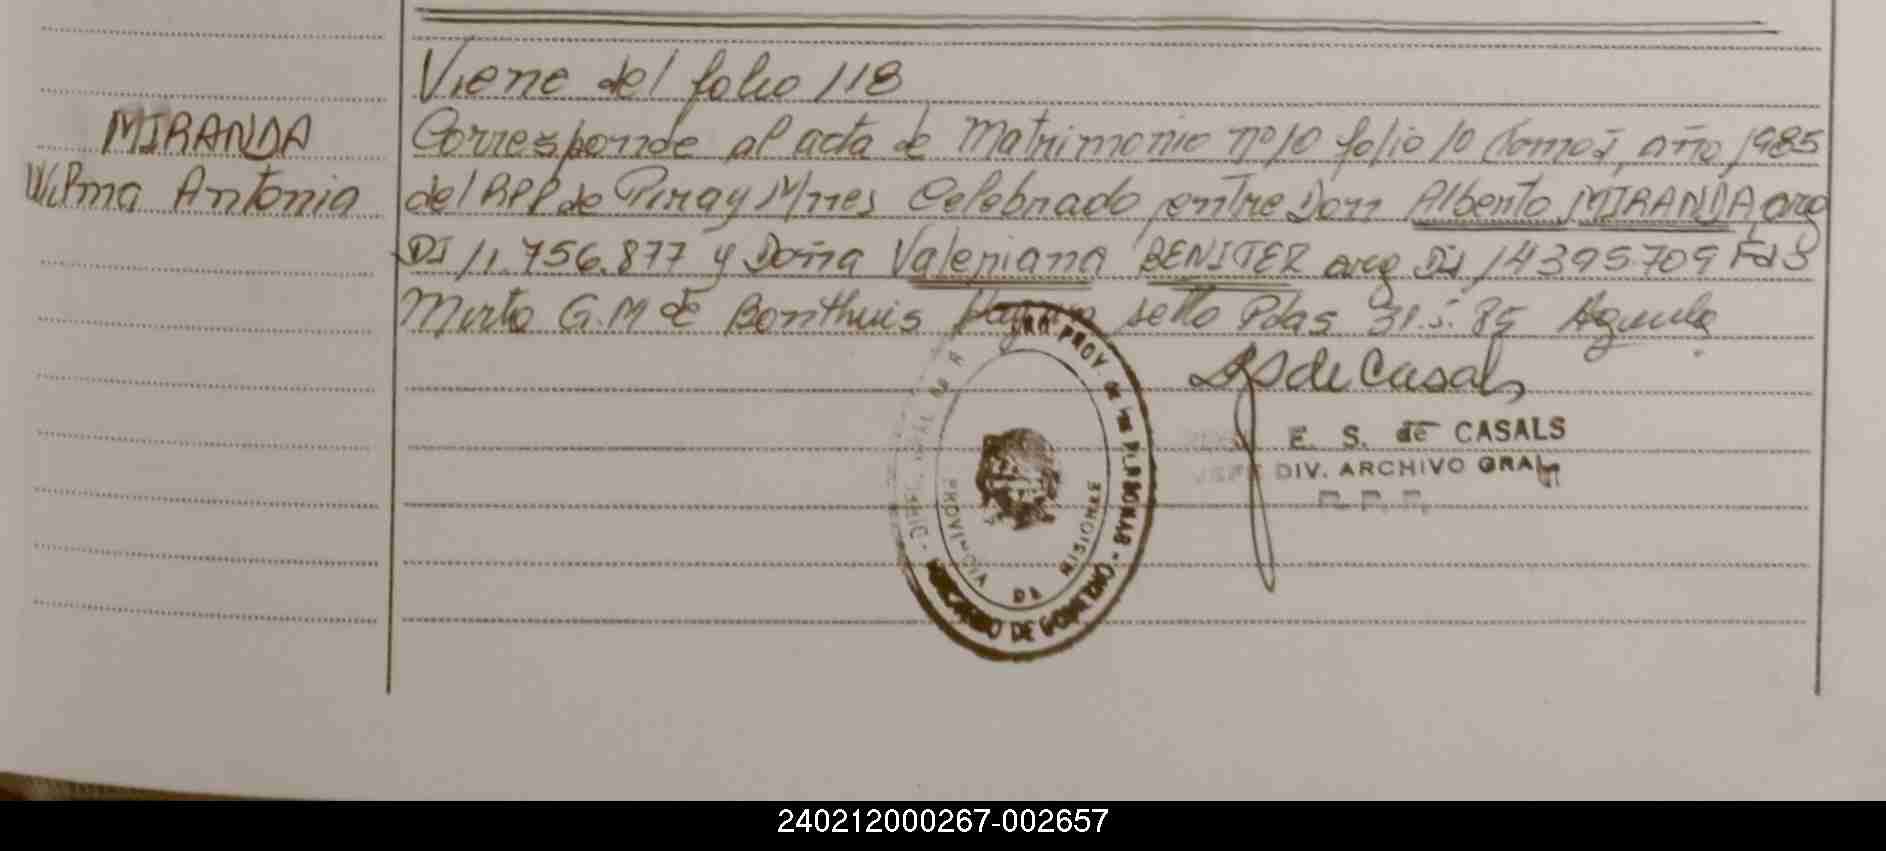 Viene del folio 118
MIRANDA
Wilma Antonia
Corresponde al acta de Matrimonio nº 10 folio 10 tomo I, año 1985
del RPP de Piray Mnes Celebrado entre Don Alberto MIRANDA arg
DI 11.756.877 y Doña Valeriana BENITEZ arg DI 14395709 Fdo
Mirta G. M de Bonthuis Hay un sello Pdas 31.5.85
E S de Casals
E. S. de CASALS
JEFE DIV. ARCHIVO GRAL
R. P. P.
PROV. DE LAS PERSONAS - MINISTERIO DE GOBIERNO - DIREC. GRAL DE R
PROVINCIA DE MISIONES
240212000267-002657